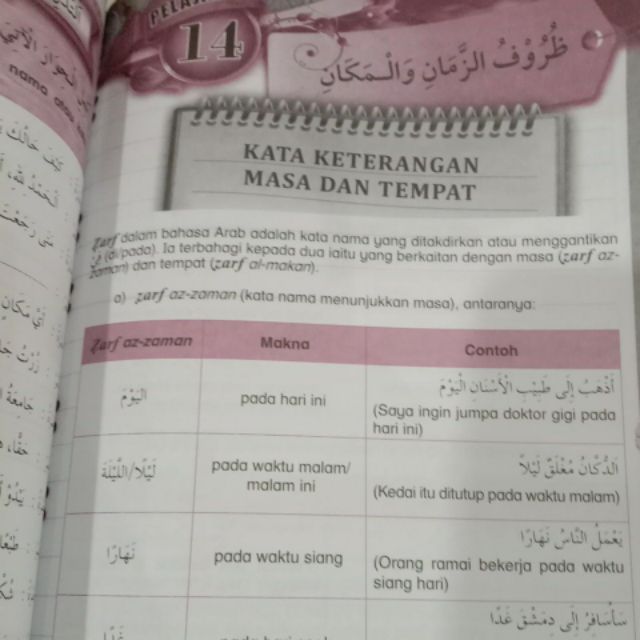 14
ظُرُوْفُ الزَّمَانِ وَالْمَكَانِ
KATA KETERANGAN
MASA DAN TEMPAT
Zarf dalam bahasa Arab adalah kata nama yang ditakdirkan atau menggantikan
(di/pada). Ia terbahagi kepada dua iaitu yang berkaitan dengan masa (zarf az-
zaman) dan tempat (zarf al-makan).
a) zarf az-zaman (kata nama menunjukkan masa), antaranya:
Zarf az-zaman
Makna
Contoh
الْيَوْمَ
pada hari ini
أَذْهَبُ إِلَى طَبِيْبِ الْأَسْنَانِ الْيَوْمَ
(Saya ingin jumpa doktor gigi pada
hari ini)
لَيْلًا/اللَّيْلَةَ
pada waktu malam/
malam ini
الدُّكَّانُ مُغْلَقٌ لَيْلًا
(Kedai itu ditutup pada waktu malam)
نَهَارًا
pada waktu siang
يَعْمَلُ النَّاسُ نَهَارًا
(Orang ramai bekerja pada waktu
siang hari)
غَدًا
سَأُسَافِرُ إِلَى دِمَشْقَ غَدًا